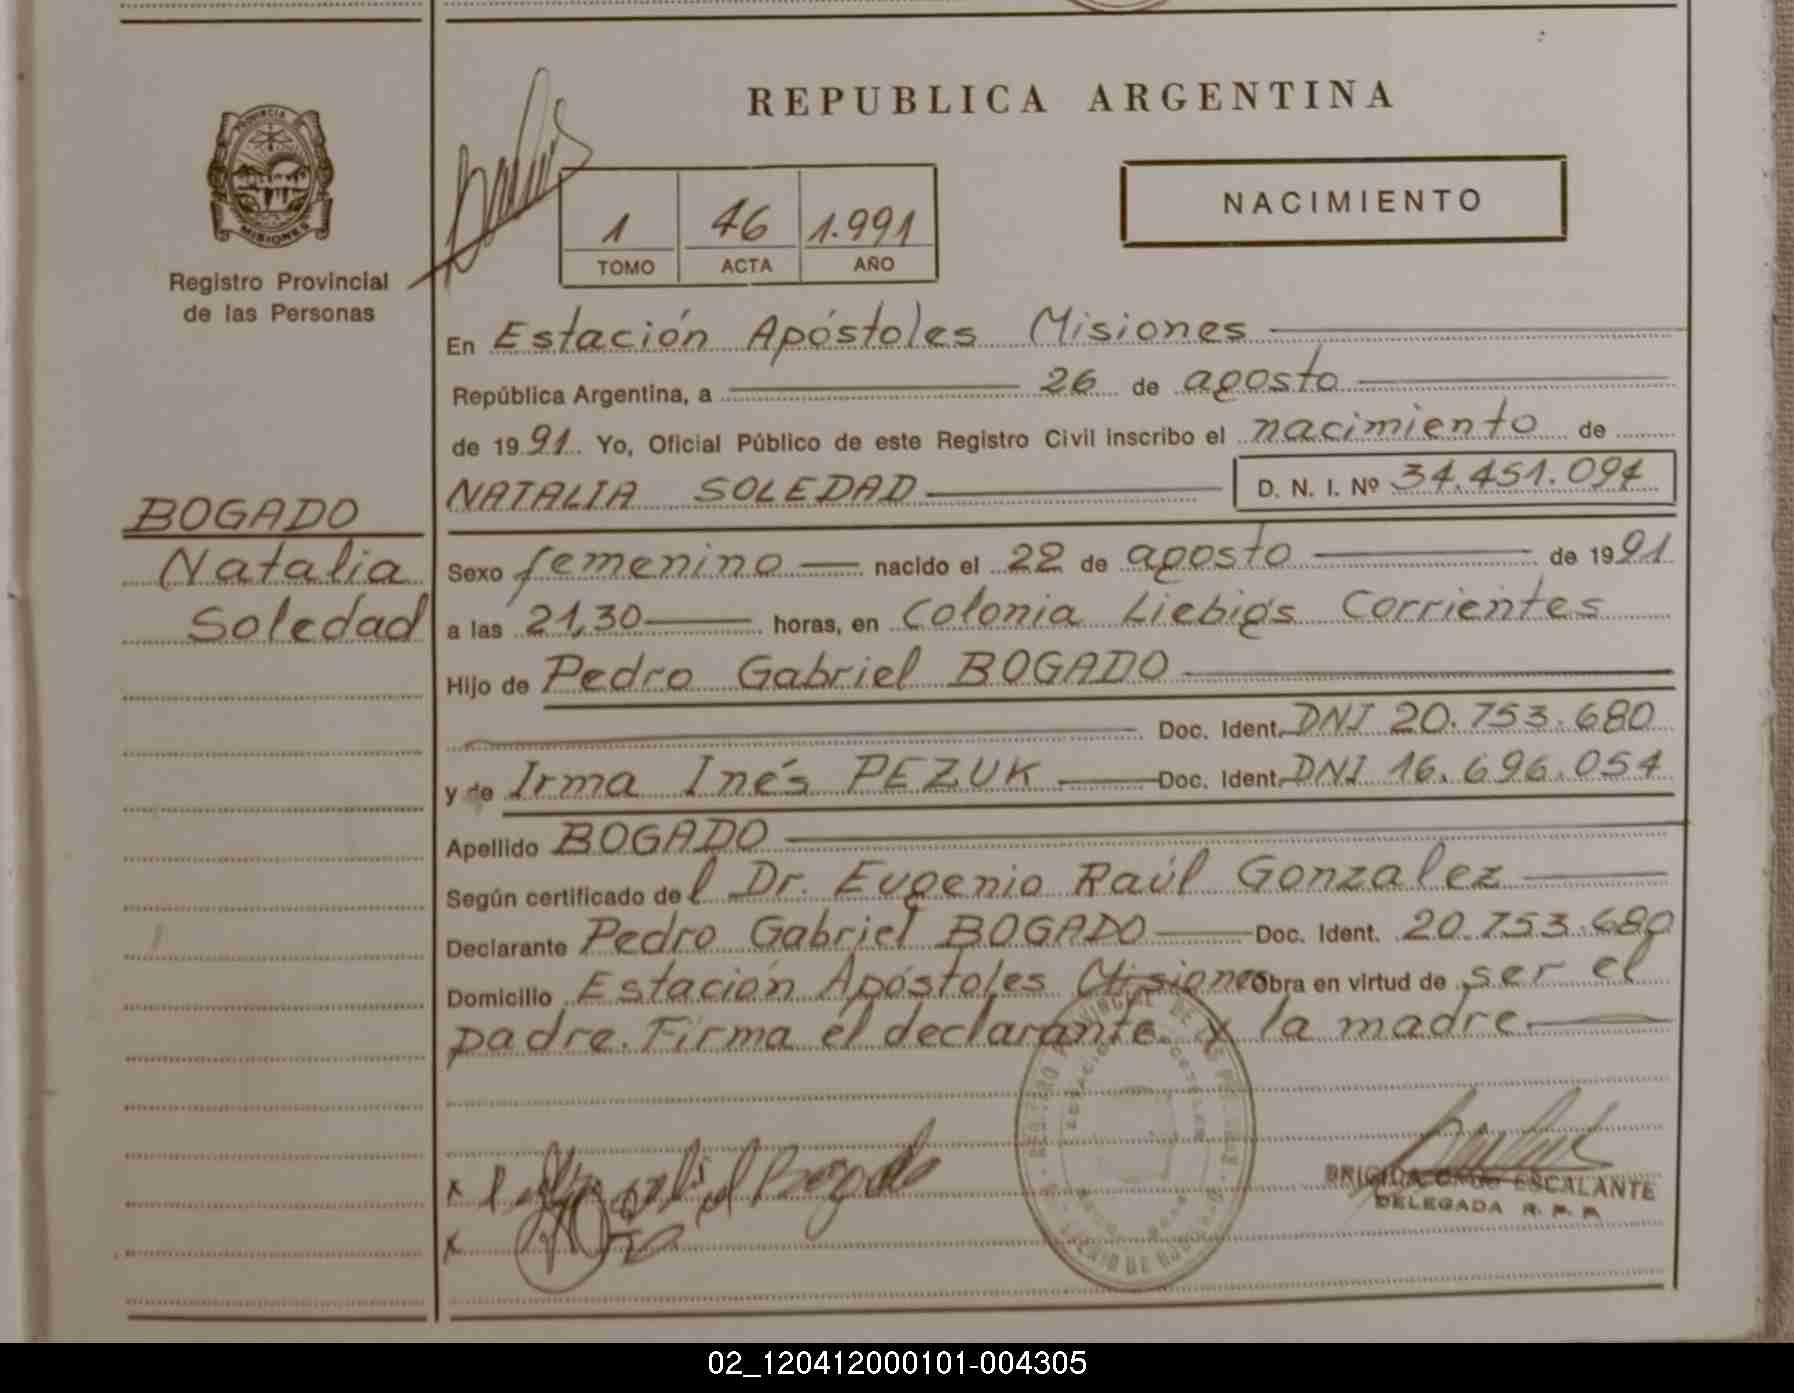 REPUBLICA ARGENTINA
PROVINCIA
MISIONES
Registro Provincial
de las Personas
1 46 1.991
TOMO ACTA AÑO
NACIMIENTO
En Estación Apóstoles Misiones
República Argentina, a 26 de agosto
de 1991 Yo, Oficial Público de este Registro Civil inscribo el nacimiento de
NATALIA SOLEDAD D. N. I. Nº 34.451.094
BOGADO
Natalia
Soledad
Sexo femenino nacido el 22 de agosto de 1991
a las 21,30 horas, en Colonia Liebig's Corrientes
Hijo de Pedro Gabriel BOGADO
Doc. Ident. DNI 20.753.680
y de Irma Inés PEZUK Doc. Ident. DNI 16.696.054
Apellido BOGADO
Según certificado del Dr. Eugenio Raúl Gonzalez
Declarante Pedro Gabriel BOGADO Doc. Ident. 20.753.680
Domicilio Estación Apóstoles Misiones Obra en virtud de ser el
padre. Firma el declarante y la madre.
ESCALANTE
DELEGADA R. P. P.
02_120412000101-004305